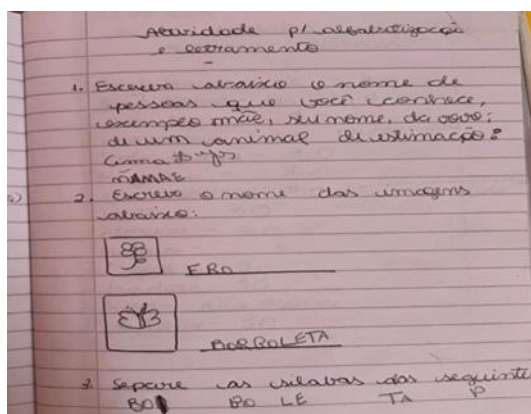 Atividade p/ alfabetização
e letramento
1. Escreva abaixo o nome de
pessoas que você conhece,
exemplo mãe, seu nome, da vovó;
de um animal de estimação?
MAMAE
2. Escreva o nome das imagens
abaixo:
FRO
BORBOLETA
3. Separe as sílabas das seguinte
BO BO LE TA P